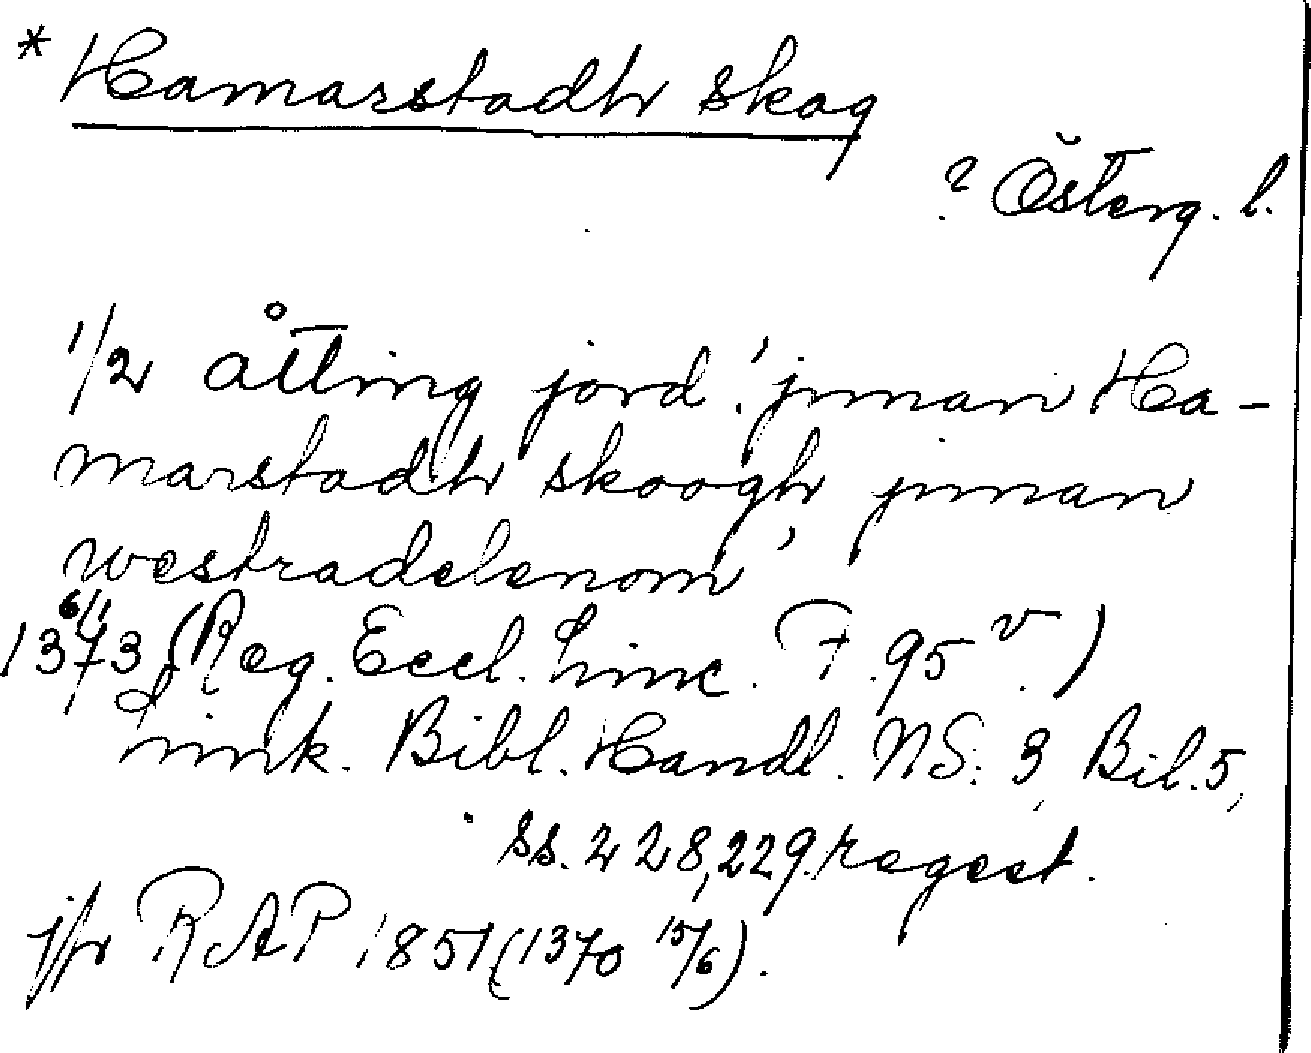 * Hamarstadh skog
? Österg. l.
1/2 åtting jord 'jnnan Ha-
marstadh skoogh jnnan
westradelenom'
1373 6/1 (Reg. Eccl. Linc. F. 95 v.)
Link. Bibl. Handl. NS: 3, Bil. 5,
ss. 228, 229. regest.
jfr RAP 1851 (1370 15/6).